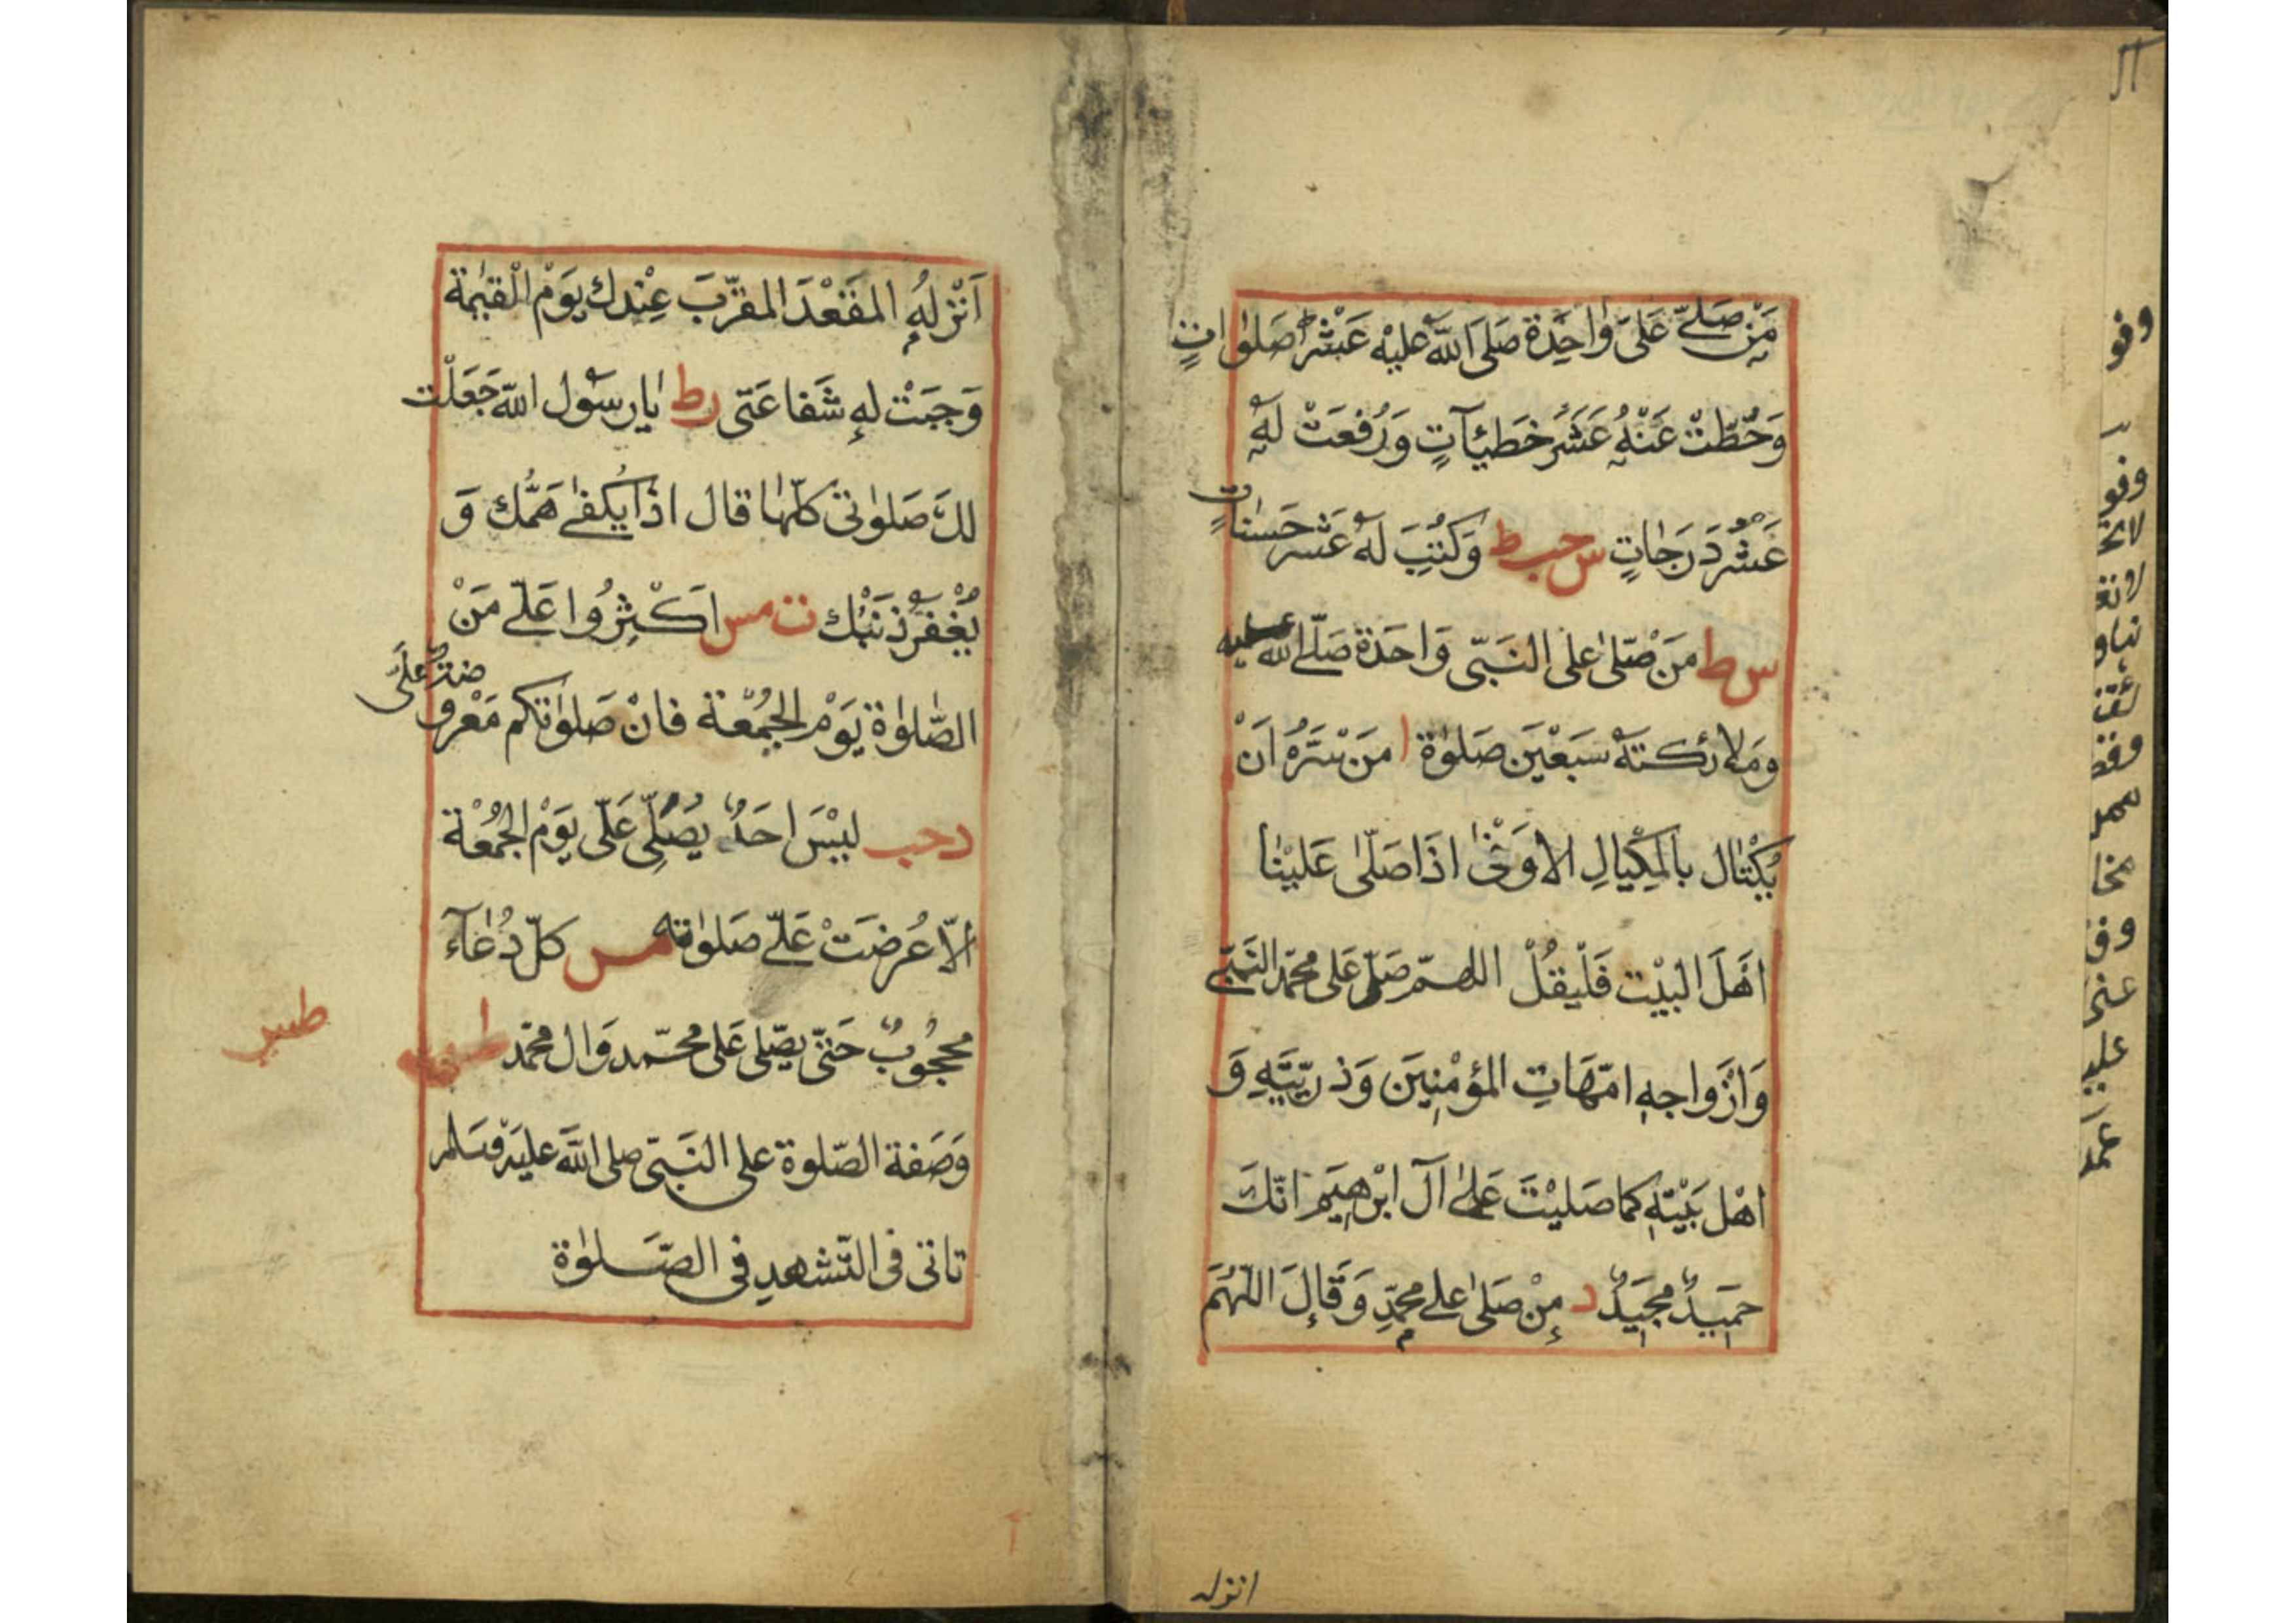 مَنْ صَلّٰى عَلَىَّ وٰاحِدَة صَلَى اللّٰه عَليْه عَشْرَ صَلَوٰاتٍ
وَحُطّتْ عَنْهُ عَشَرُ خَطيٓئاتٍ وَرُفعَتْ لَهٗ
عَشْرُ دَرَجٰاتٍ س حب ط وَكُتِبَ لَهٗ عَشر حَسنٰاتٍ
س ط مَنْ صَلّىٰ على النَبّى وَاحدَة صَلّى اللّٰه عليه
وَمَلائكتهٗ سَبْعْينَ صَلوٰة ا مَن سَرّهُ اَنْ
يُكْتٰال بالمِكْيالِ الاَوْفىٰ اذَا صَلّىٰ عَليْنٰا
اهْلَ البيْت فَلْيقُلْ اللهمّ صَلّ عَلى محمّد النَبّى
وَازْواجهِ امّهَاتِ المؤمْنِينَ وَذريّتَهِ وَ
اهْل بَيْتهِ كما صَليْتَ عَلىٰ آل ابْرٰهيَم انّكَ
حمَيدٌ مجيَدٌ ر مِنْ صَلىٰ على محمّدٍ وَقَالَ اللّهُمَ
انزله
اَنْزلهُ المقَعْدَ المقرّبَ عِنْدك يَوَمْ القيٰمة
وَجبَتْ لهِ شَفاعَتى رط يٰا رسَوُل اللّٰه جَعَلْت
لكَ صَلوٰتى كلّهٰا قال اذًا يُكفىٰ هَمُّك وَ
يُغْفَرُ ذنَبْك ت مس اَكْثِرُوا عَلّى مَنْ
الصّلوٰاة يَوَمْ الجُمُعْة فانْ صَلوٰتكم مَعْرو
ضةٌ عَلَىّ
د حب ليْسَ احَدٌ يُصَلّى عَلّى يَوَمْ الجُمُعْة
الاّ عُرضَتْ عَلّى صَلوٰته مس كلّ دُعٰآء
محجُوبٌ حَتّى يصّلى عَلى محّمد وَال محمّد ط
طسير
وَصَفة الصّلوة على النَبّى صلى اللّٰه عليه وسَلم
تاتى فى التّشهد فى الصّلوٰة